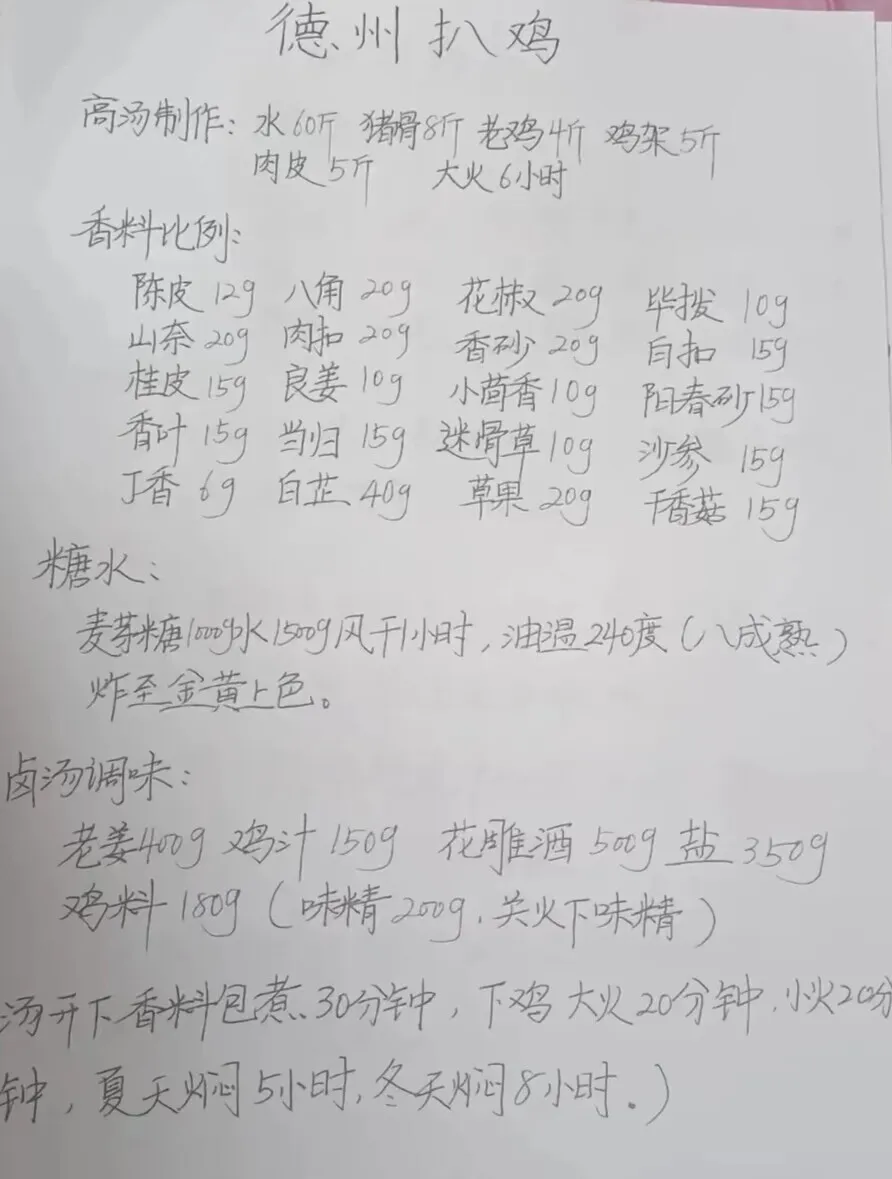 德州扒鸡
高汤制作: 水60斤 猪骨8斤 老鸡4斤 鸡架5斤
肉皮5斤 大火6小时
香料比例:
陈皮 12g 八角 20g 花椒 20g 毕拨 10g
山奈 20g 肉扣 20g 香砂 20g 白扣 15g
桂皮 15g 良姜 10g 小茴香 10g 阳春砂 15g
香叶 15g 当归 15g 迷骨草 10g 沙参 15g
丁香 6g 白芷 40g 草果 20g 干香菇 15g
糖水:
麦芽糖1000g水1500g风干1小时,油温240度(八成熟)
炸至金黄上色。
卤汤调味:
老姜400g 鸡汁150g 花雕酒500g 盐350g
鸡料180g (味精200g.关火下味精)
汤开下香料包煮30分钟, 下鸡大火20分钟.小火20分
钟, 夏天焖5小时,冬天焖8小时.)